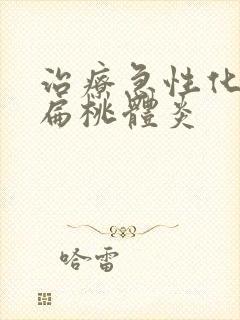 治療急性化
扁桃體炎
哈雷